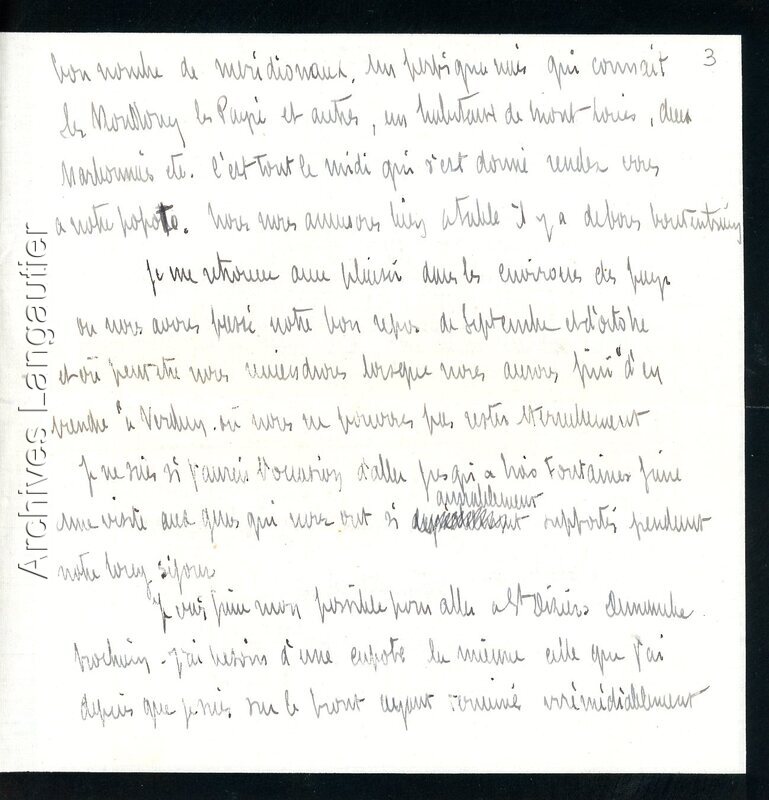 3
bon nombre de méridionaux, un perpignanais qui connait
les les Pagé et autres, un habitant de Mont-Louis, deux
Narbonnais etc. C'est tout le midi qui s'est donné rendez vous
a notre popote. Nous nous amusons bien a table il y a de bons boutentrain
Je me retrouve avec plaisir dans les environs des pays
ou nous avons passé notre bon repos de Septembre et d'octobre
et où peut-être nous reviendrons lorsque nous aurons fini "d'en
prendre" a Verdun. où nous ne pouvons pas rester éternellement
Je ne sais si j'aurais l'occasion d'aller jusqu'a Trois Fontaines faire
une visite aux gens qui nous ont si aimablement supportés pendant
notre long séjour
Je vais faire mon possible pour aller a St Dizier Dimanche
prochain - J'ai besoin d'une capote la mienne celle que j'ai
depuis que je suis sur le front ayant terminé irrémédiablement
Archives Langautier